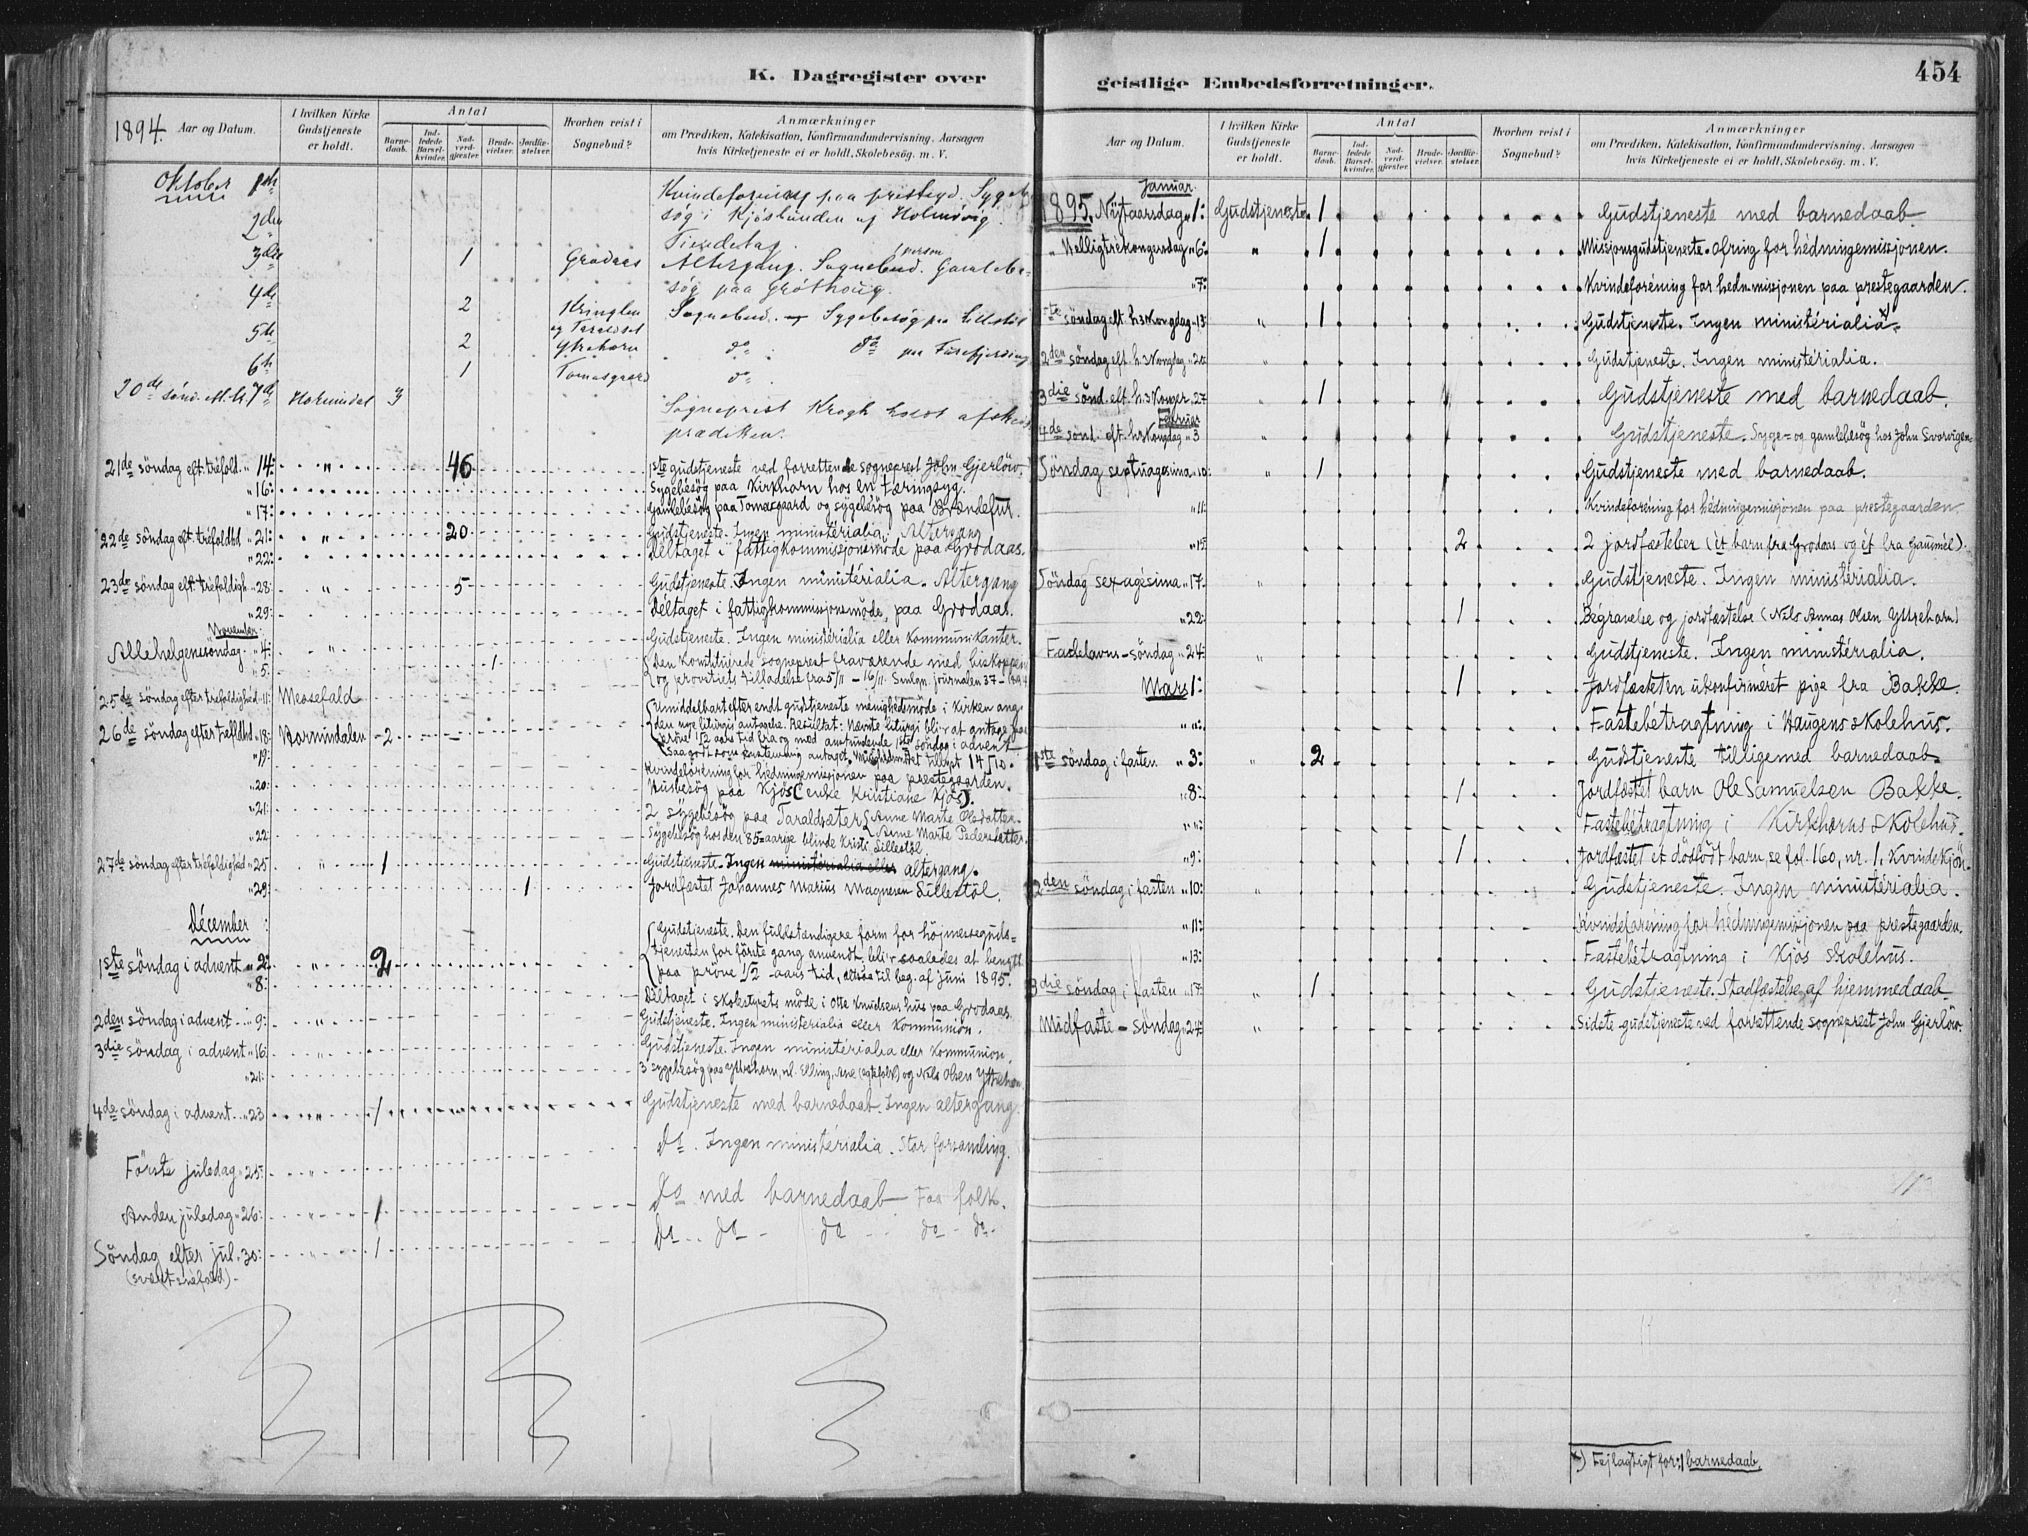 K. Dagregister over
1894. Aar og Datum.
I hvilken Kirke Gudstjeneste er holdt.
Antal
Barnedaab.
Indledede Barselkvinder.
Nadverdgjester.
Brudevielser.
Jordfæstelser.
Hvorhen reist i Sognebud?
Anmærkninger
om Prædiken, Katekisation, Konfirmandundervisning. Aarsagen
hvis Kirketjeneste ei er holdt. Skolebesøg. m. V.
Oktober 1ste Kvindeforening paa
2den søg i Kjøsbunden og Holmövig.
Tiendetag.
3die 1 Grodaas Altergang. Sognebud. 1 person
søg paa Gröthoug.
4de 2 Kringlen Sognebud. Sygebesøg paa Lillestöl
og Taraldset
5te 2 Ytrehorn do do paa
6te 1 Tomasgaard do
20de sönd. 7de Hornindal 3 Sogneprest Krogh holdt afskeds
prædiken.
21de söndag eft. trefold. " 14: " 46 1ste gudstjeneste ved forrettende sogneprest John Gjerlöw.
" 16: Sygebésög paa Kirkhorn hos en tæringsyg.
" 17: Gamlebésög paa Tomasgaard og sygebésög paa Brændefur.
22de söndag eft. tréfoldhd " 21: " 20 Gudstjeneste. Ingen ministérialia. Altergang
" 22: Déltaget i fattigkommissjonsmöde paa Grodaas.
23de söndag eft. tréfoldigh " 28: " 5 Gudstjeneste. Ingen ministérialia. Altergang
" 29: Déltaget i fattigkommissjonsmöde paa Grodaas.
November
Allehelgenssöndag " 4: " Gudstjeneste. Ingen ministérialia eller kommunikanter.
" 5: 1 Den konstituerede sogneprest fraværende med biskoppens
og provstiets tilladelse fra 5/11 - 16/11. Smlgn. journalen 37 - 1894
25de söndag efter trefoldighed " 11: Messefald
26de söndag efter trefldhd " 18: Hornindalen 2 Umiddelbart efter endt gudtjeneste ménighedsmöde i Kirken ang.
den nye liturgis antagelse. Resultat: Nævnte liturgi bliver at antage paa
pröve 1/2 aars tid fra og med anstundende 1ste söndag i advent
" 19: Kvindeforening for hédningemissjonen paa prestegaarden.
" 20: Husbesög paa Kjös (enke Kristiane Kjös).
" 21: 2 sygebésög paa Taraldsæter (Anne Marte Olsdatter.
Anne Marte Pedersdatter.
" 22: Sygebésög hos den 85-aarige blinde Kristi Lillestöl
27de söndag efter tréfoldighed " 25 " 1 Gudstjeneste. Ingen ministérialia eller altergang.
" 29: 1 Jordfæstet Johannes Marius Magnesen Lillestöl.
Décember
Gudstjeneste. Den fuldstændigere form for höjmessegudstjenesten
for förste gang anvendt, bliver saaledes at benytte
1ste söndag i advent " 2: " 2 paa pröve 1/2 - aars tid, altsaa til beg. af juni 1895.
" 8: Déltaget i skolestyrets möde i Otte Knudsens hus paa Grodaas.
2den söndag i advent " 9: " Gudstjeneste. Ingen ministerialia eller kommunion.
3die söndag i advent " 16: " Gudstjeneste. Ingen ministérialia eller kommunion.
" 21: 3 sygebésög paa Yttrehorn, nl. Elling, Ane (egtefolk) og Nils Olsen Yttrehorn.
4de söndag i advent " 23 " 1 Gudstjeneste med barnedaab. Ingen altergang.
Do. Ingen ministérialia. Stor forsamling.
Förste juledag " 25: "
Anden juledag " 26: " 1 Do med barnedaab Faa folk.
Söndag efter jul " 30: " 1 Do do do do do
geistlige Embedsforretninger.
454
Aar og Datum.
I hvilken Kirke Gudstjeneste er holdt.
Antal
Barnedaab.
Indledede Barselkvinder.
Nadverdgjester.
Brudevielser.
Jordfæstelser.
Hvorhen reist i Sognebud?
Anmærkninger
om Prædiken, Katekisation, Konfirmandundervisning. Aarsagen
hvis Kirketjeneste ei er holdt. Skolebesøg. m. V.
Januar
1895. Nytaarsdag " 1: Gudstjeneste 1 Gudstjeneste med barnedaab
" Helligtrékongersdag " 6: " 1 Missjonsgudstjeneste. Ofring for hédningemissjonen.
" 7: Kvindeforéning for hedn.missjonen paa prestegaarden.
1ste söndag eft. h3kongdag " 13: " 1 Gudstjeneste. Ingen ministérialia x).
2den söndag eft. h.3kongdag " 20: " Gudstjeneste. Ingen ministérialia.
3die sönd. eft. h.3konger " 27 " 1 Gudstjeneste med barnedaab.
Februar
4de sönd. eft. h3kongdag " 3 " Gudstjeneste. Syge- og gamlebésög hos John Svorvigen
Söndag septuagésima " 10: " 1 Gudstjeneste med barnedaab.
" 11: Kvindeforéning for hédningemissjonen paa prestegaarden
" 15: 2 2 jordfæstelser (ét barn fra Grodaas og ét fra Gausmél)
Söndag sexagésima " 17: " Gudstjeneste. Ingen ministérialia.
" 22: 1 Begravelse og jordfæstelse (Nils Annas Olsen Yttrehorn)
Fastelavns-söndag " 24: " Gudstjeneste. Ingen ministérialia.
Mars 1: 1 Jordfæstet en ukonfirmeret pige fra Bakke.
" ": Fastebétragtning i Haugens skolehus.
1ste söndag i fasten " 3: " 2 Gudstjeneste tilligemed barnedaab.
" 8: 1 Jordfæstet barn Ole Samuelsen Bakke.
" ": Fastebétragtning i Kirkhorns skolehus.
" 9: 1 Jordfæstet et dödfödt barn, se fol. 160, nr. 1. Kvindekjön.
2den söndag i fasten " 10: " Gudstjeneste. Ingen ministérialia.
" 11: Kvindeforéning for hédningemissjonen paa prestegaarden.
" 13: Fastebétragtning i Kjös skolehus.
3die söndag i fasten " 17: " 1 Gudstjeneste. Stadfæstelse af hjemmedaab.
Midfaste - söndag " 24: " Sidste gudstjeneste ved forrettende sogneprest John Gjerlöw.
x) Fejlagtigt for: 1 barnedaab.